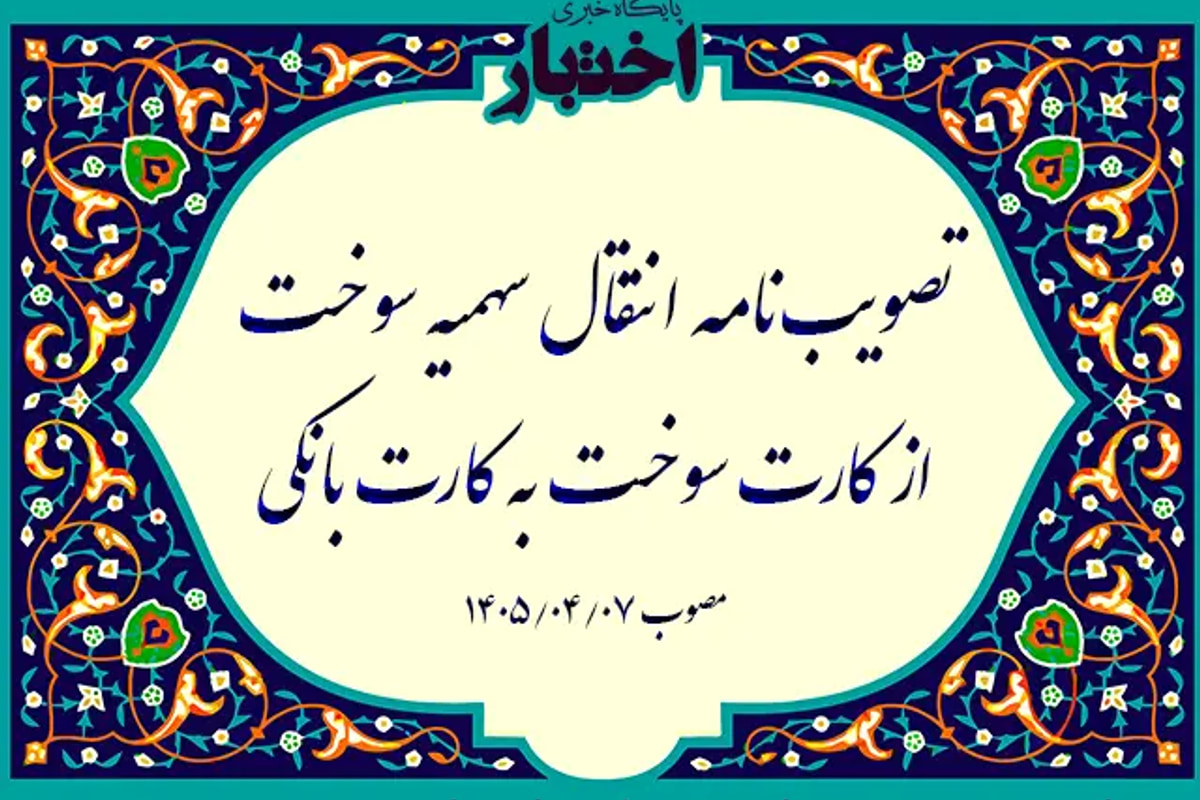 پایگاه خبری
اختبار
تصویب‌نامه انتقال سهمیه سوخت
از کارت سوخت به کارت بانکی
مصوب ۱۴۰۵/۰۴/۰۷